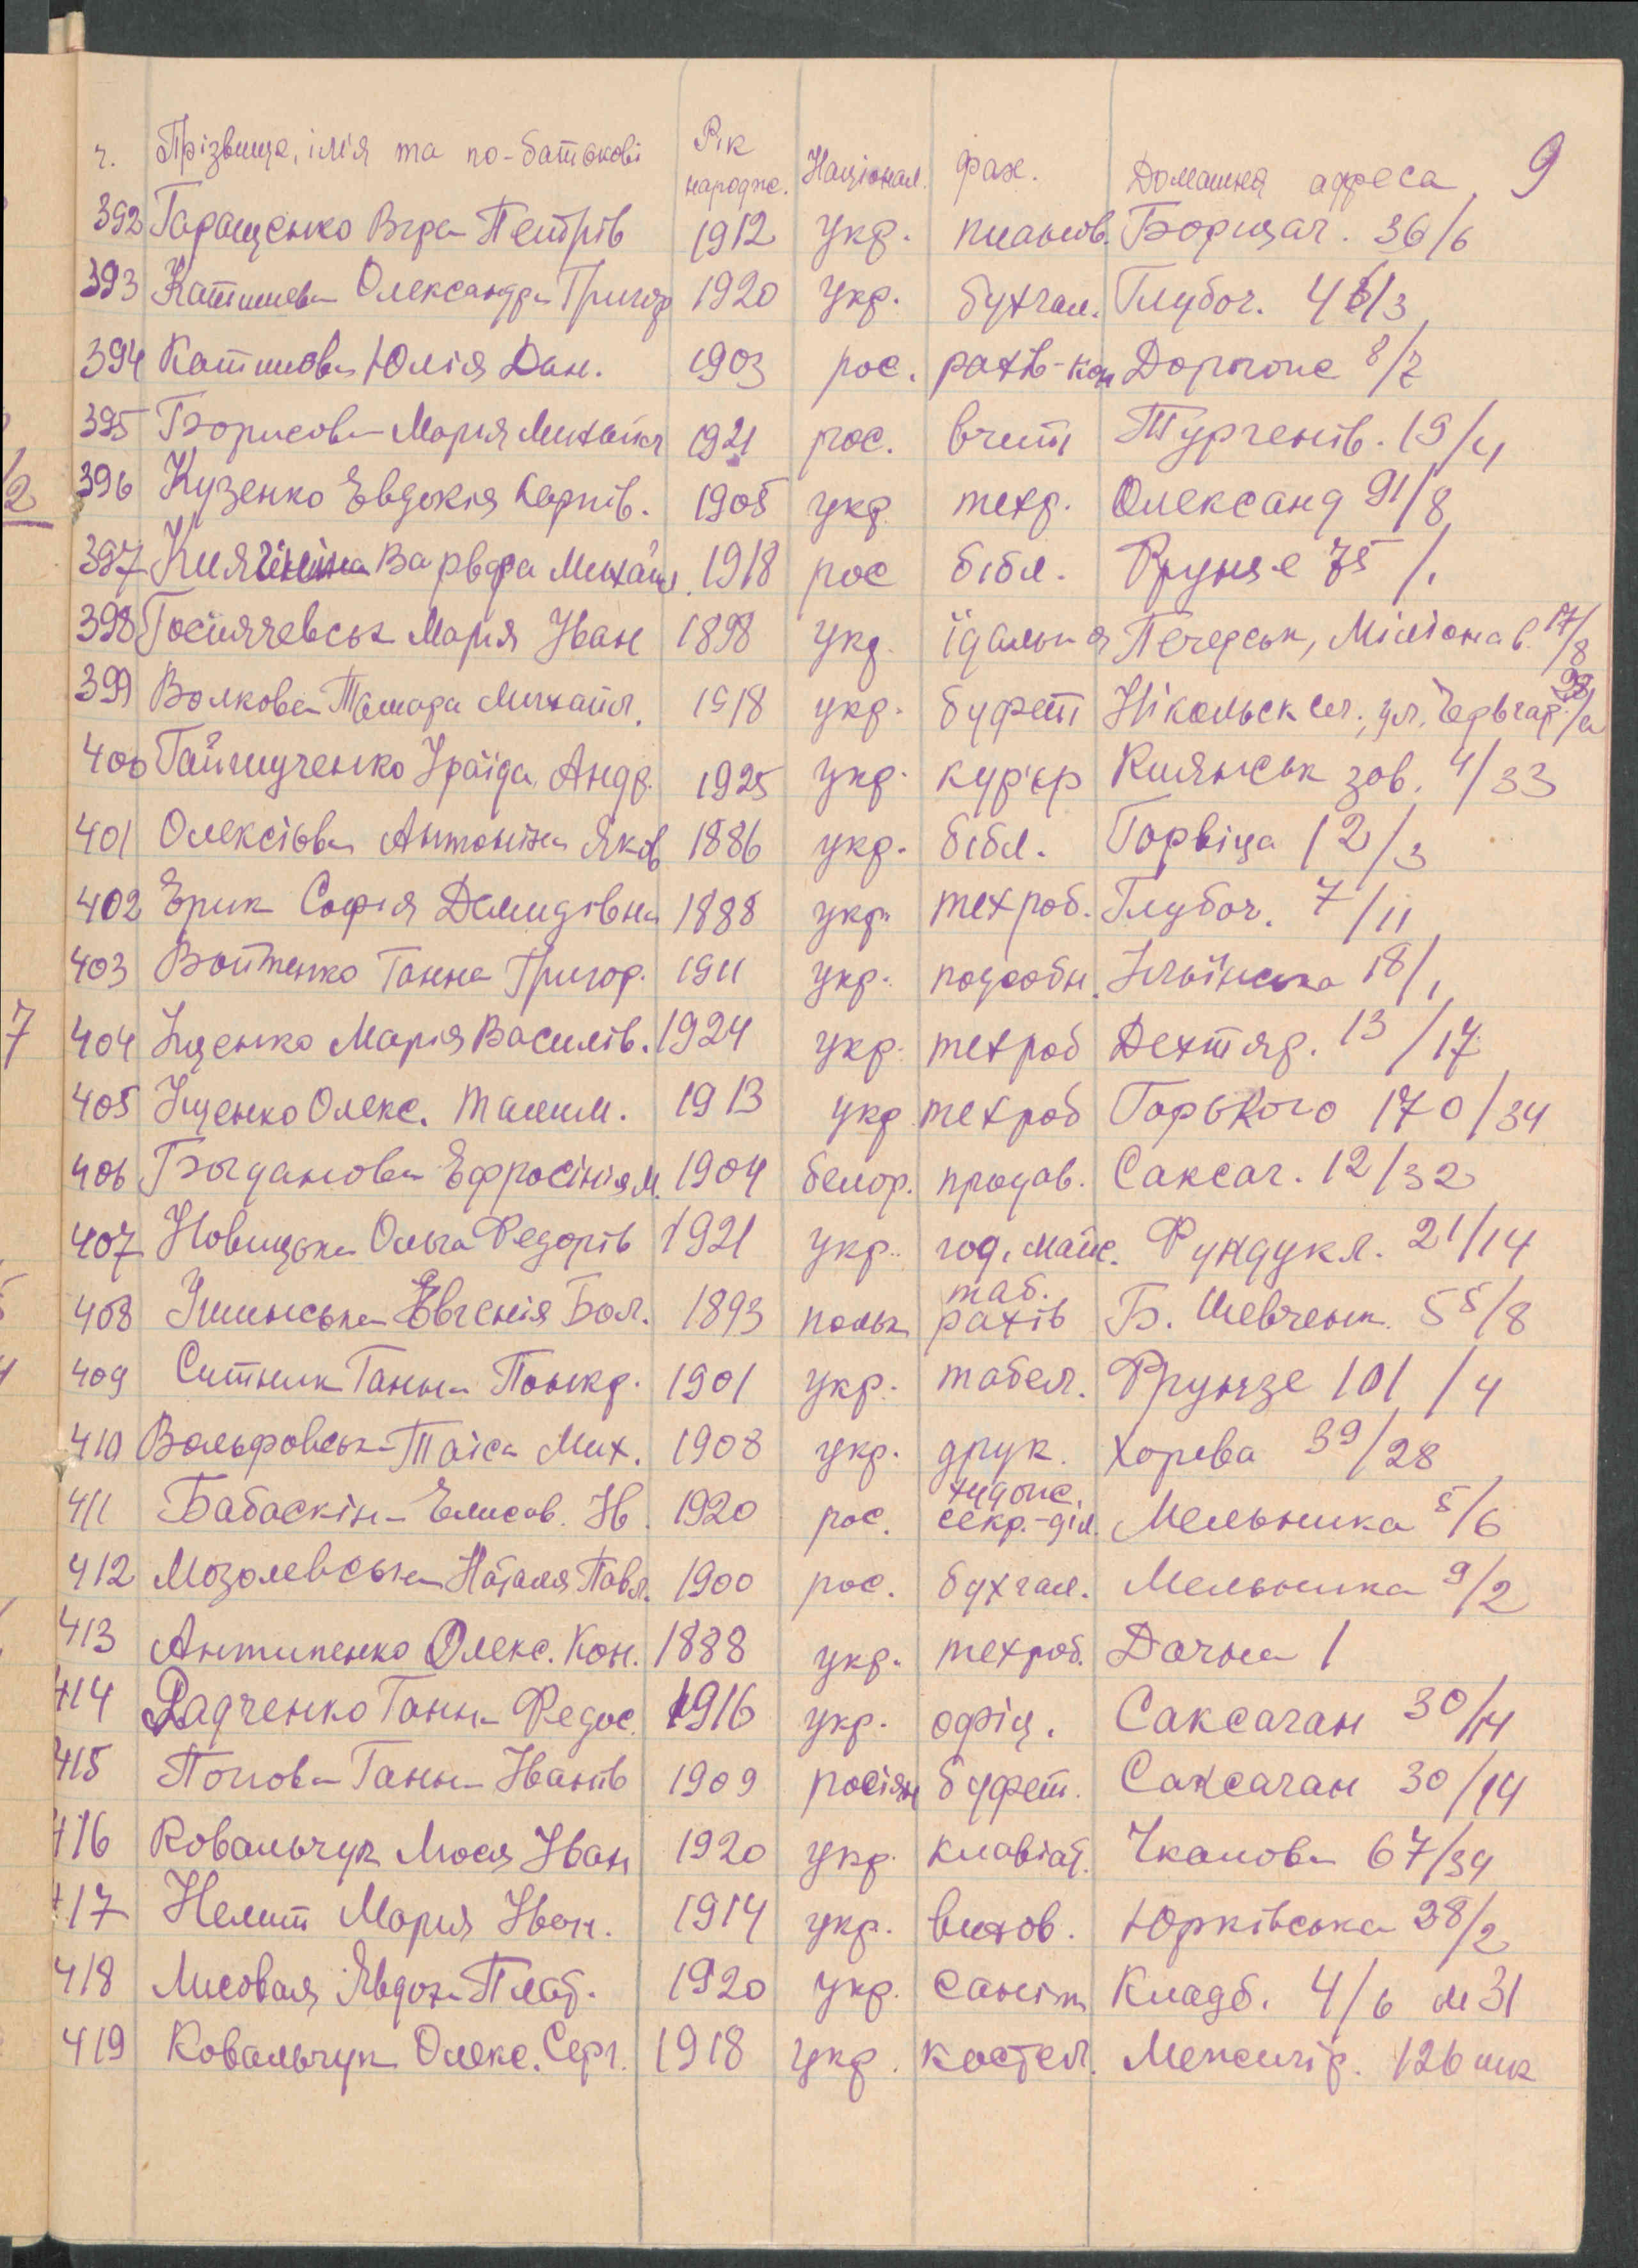 9
ч. Прізвище, ім'я та по-батькові Рік народж. Націонал. фах. Домашня адреса
392 Гаращенко Віра Петрів 1912 укр. Борщаг. 36/6
393 Олександра Григор 1920 укр. бухгал. Глубоч. 46/3
394 Катинова Юлія Дан. 1903 рос. рахів-кон Дорогож 8/7
395 Борисова Марія Михайл 1921 рос. вчит Тургенів. 19/4
396 Кузенко Евдокія Карпів. 1905 укр. техр. Олександ 91/8
397 Варвара Михайл. 1918 рос бібл. Фрунзе 75/1
398 Марія Іван 1898 укр. їдальня Печерськ, Міліонав. 17/8
399 Волкова Тамара Михайл. 1918 укр. буфет Нікольск сл., ул.
400 Гаймученко Іраїда Андр. 1925 укр. кур'єр Киянськ зав. 4/33
401 Олексієва Антоніна Яків 1886 укр. бібл. Горвіца 12/3
402 Ерик Софія Демидівна 1888 укр. техроб. Глубоч. 7/11
403 Войтенко Ганна Григор. 1911 укр. подсобн. Ільїнська 18/1
404 Іщенко Марія Василів. 1924 укр. техроб Дехтяр. 13/17
405 Іщенко Олекс. 1913 укр техроб Горького 170/34
406 Богданова Ефросінія М. 1904 белор. продав. Саксаг. 12/32
407 Новицька Ольга Федорів 1921 укр. год. майс. Фундукл. 21/14
408 Евгенія Бол. 1893 польк таб. рахів Б. Шевченк. 55/8
409 Ситник Ганна Понкр. 1901 укр. табел. Фрунзе 101/4
410 Вольфовська Таїса Мих. 1908 укр. друк. Хорева 39/28
411 Бабаскіна Елисав. Ів. 1920 рос. художс. секр.-діл. Мельника 5/6
412 Мозолевська Наталя Павл. 1900 рос. бухгал. Мельника 9/2
413 Антипенко Олекс. Кон. 1888 укр. техроб. Дачна 1
414 Радченко Ганна Федос. 1916 укр. офіц. Саксаган 30/14
415 Попова Ганна Іванів 1909 росіян буфет. Саксаган 30/14
416 Ковальчук Люся Іван 1920 укр. клавіат. Чкалова 67/39
417 Нелит Марія Іван. 1914 укр. вихов. Юрківська 28/2
418 Лисовая Явдоха Плат. 1920 укр. саніт Кладб. 4/6 м 31
419 Ковальчук Олекс. Серг. 1918 укр. костел. Межигір. 12